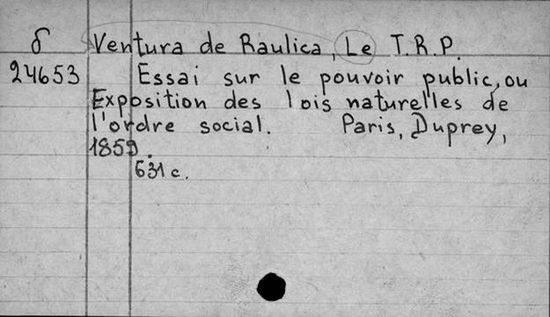 δ Ventura de Raulica, Le T.R.P.
24653 Essai sur le pouvoir public, ou
Exposition des lois naturelles de
l'ordre social. Paris, Duprey,
1859.
631 c.